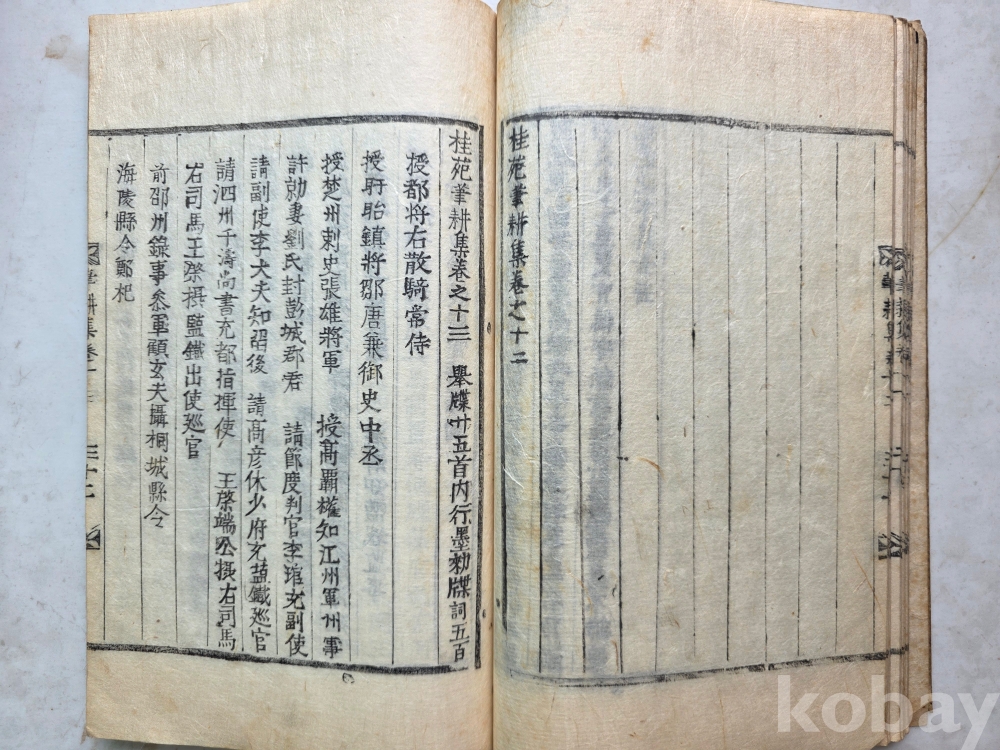 桂苑筆耕集卷之十二
桂苑筆耕集卷之十三 舉牒卅五首內行墨勑牒詞五百
授都将右散騎常侍
授盱眙鎮將鄒唐兼御史中丞
授楚州刺史張雄將軍 授髙覇權知江州軍州事
許勍妻劉氏封彭城郡君 請節度判官李琯充副使
請副使李大夫知留後 請髙彦休少府充盐鐵廵官
請泗州于濤尚書充都指揮使 王棨端公摂右司馬
右司馬王棨摂監鐵出使廵官
前邵州錄事叅軍顧玄夫攝桐城縣令
海陵縣令鄭杞
筆耕集卷
kobay